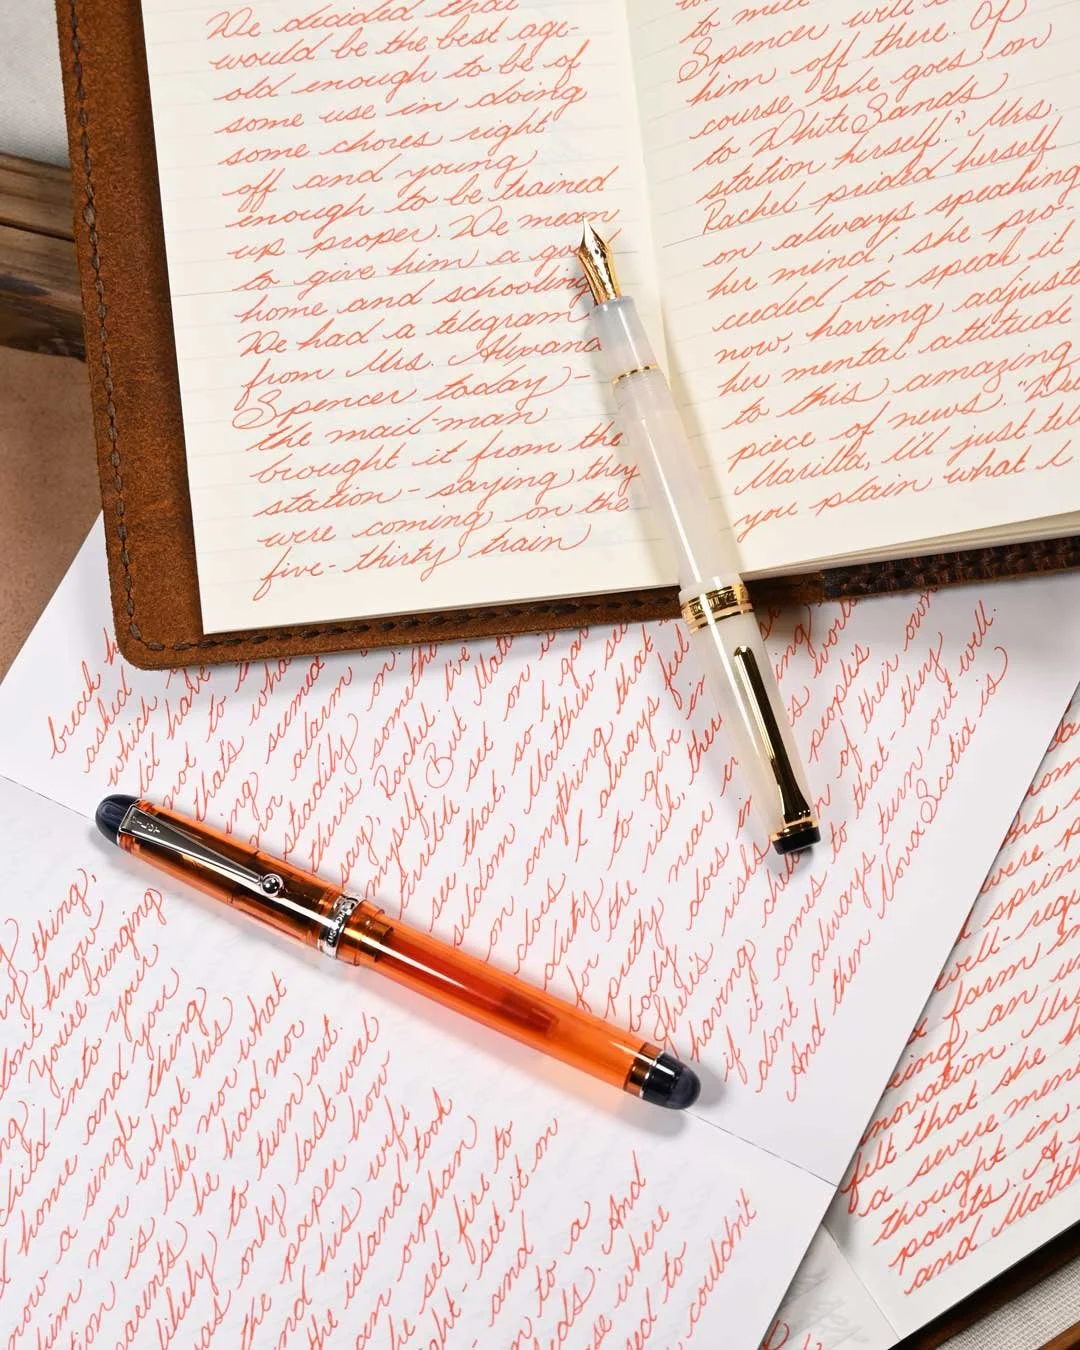 We decided that
would be the best age-
old enough to be of
some use in doing
some chores right
off and young
enough to be trained
up proper. We mean
to give him a good
home and schooling
We had a telegram
from Mrs. Alexand
Spencer today -
the mail man
brought it from the
station - saying they
were coming on the
five-thirty train
to
Spencer will
him off there. Of
course she goes on
to White Sands
station herself." Mrs.
Rachel prided herself
on always speaking
her mind; she pro-
ceeded to speak it
now, having adjuste
her mental attitude
to this amazing
piece of news. "Wel
Marilla, I'll just tell
you plain what I
beck
asked
which
I'd have
not to
that's wha
ing seemed
nor alarm
steadily on.
this someth
say, Rachel. I've
myself. But Matt
terrible set on it
see that, so I gav
seldom Matthew se
on anything that
does I always feel
duty to give in
for the risk, the
pretty near
body does in is
There's risks in people's
having children of their own
if it comes to that - they
don't always turn out well.
And then Nova Scotia is
thing,
don't know
You're bringing
child into your
home and you
now a single thing
him nor what his
tion is like nor what
parents he had nor
likely to turn out.
as only last week
the paper how
and his wife
the island took
an orphan
he set fire to
ght - set it on
and
to a
eds. And
se where
sed to
couldn't
were
sprin
well-regu
farm
ing, an
novation. Mrs
felt that she h
a severe men
thought in
points. A
and Matth